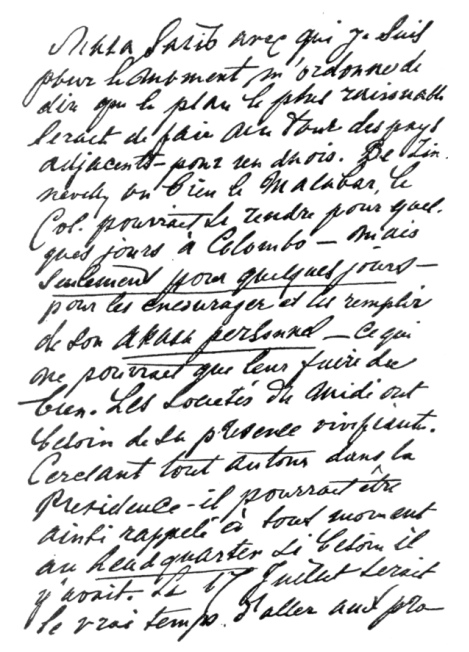 Maha Sahib avec qui je suis
pour le moment, m'ordonne de
dire que le plan le plus raisonnable
serait de faire un tour des pays
adjacents pour un mois. De Tin-
nevely ou bien le Malabar, le
Col. pourrait se rendre pour quel-
ques jours à Colombo — mais
seulement pour quelques jours —
pour les encourager et les remplir
de son akasa personnel — ce qui
ne pourrait que leur faire du
bien. Les Societés du Midi ont
besoin de sa présence vivifiante.
Cerclant tout autour dans la
Presidence — il pourrait être
ainsi rappelé à tout moment
au headquarters si besoin il
y avait. Le 17 Juillet serait
le vrai temps d'aller aux pro-